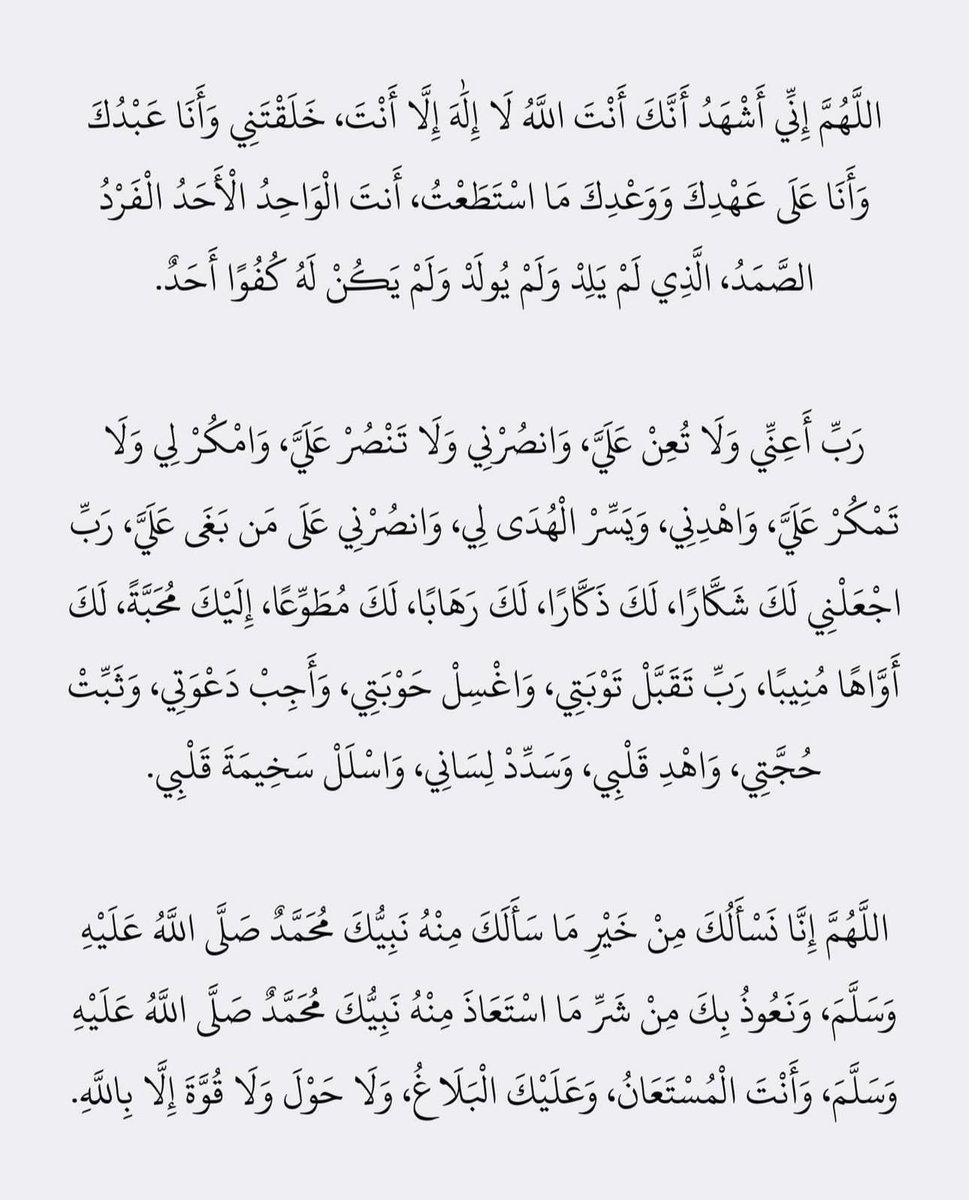 اللَّهُمَّ إِنِّي أَشْهَدُ أَنَّكَ أَنْتَ اللَّهُ لَا إِلَٰهَ إِلَّا أَنْتَ، خَلَقْتَنِي وَأَنَا عَبْدُكَ
وَأَنَا عَلَى عَهْدِكَ وَوَعْدِكَ مَا اسْتَطَعْتُ، أَنتَ الْوَاحِدُ الْأَحَدُ الْفَرْدُ
الصَّمَدُ، الَّذِي لَمْ يَلِدْ وَلَمْ يُولَدْ وَلَمْ يَكُنْ لَهُ كُفُوًا أَحَدٌ.
رَبِّ أَعِنِّي وَلَا تُعِنْ عَلَيَّ، وَانصُرْنِي وَلَا تَنْصُرْ عَلَيَّ، وَامْكُرْ لِي وَلَا
تَمْكُرْ عَلَيَّ، وَاهْدِنِي، وَيَسِّرْ الْهُدَى لِي، وَانصُرْنِي عَلَى مَن بَغَى عَلَيَّ، رَبِّ
اجْعَلْنِي لَكَ شَكَّارًا، لَكَ ذَكَّارًا، لَكَ رَهَابًا، لَكَ مُطَوِّعًا، إِلَيْكَ مُحَبَّةً، لَكَ
أَوَّاهًا مُنِيبًا، رَبِّ تَقَبَّلْ تَوْبَتِي، وَاغْسِلْ حَوْبَتِي، وَأَجِبْ دَعْوَتِي، وَثَبِّتْ
حُجَّتِي، وَاهْدِ قَلْبِي، وَسَدِّدْ لِسَانِي، وَاسْلَلْ سَخِيمَةَ قَلْبِي.
اللَّهُمَّ إِنَّا نَسْأَلُكَ مِنْ خَيْرِ مَا سَأَلَكَ مِنْهُ نَبِيُّكَ مُحَمَّدٌ صَلَّى اللَّهُ عَلَيْهِ
وَسَلَّمَ، وَنَعُوذُ بِكَ مِنْ شَرِّ مَا اسْتَعَاذَ مِنْهُ نَبِيُّكَ مُحَمَّدٌ صَلَّى اللَّهُ عَلَيْهِ
وَسَلَّمَ، وَأَنْتَ الْمُسْتَعَانُ، وَعَلَيْكَ الْبَلَاغُ، وَلَا حَوْلَ وَلَا قُوَّةَ إِلَّا بِاللَّهِ.